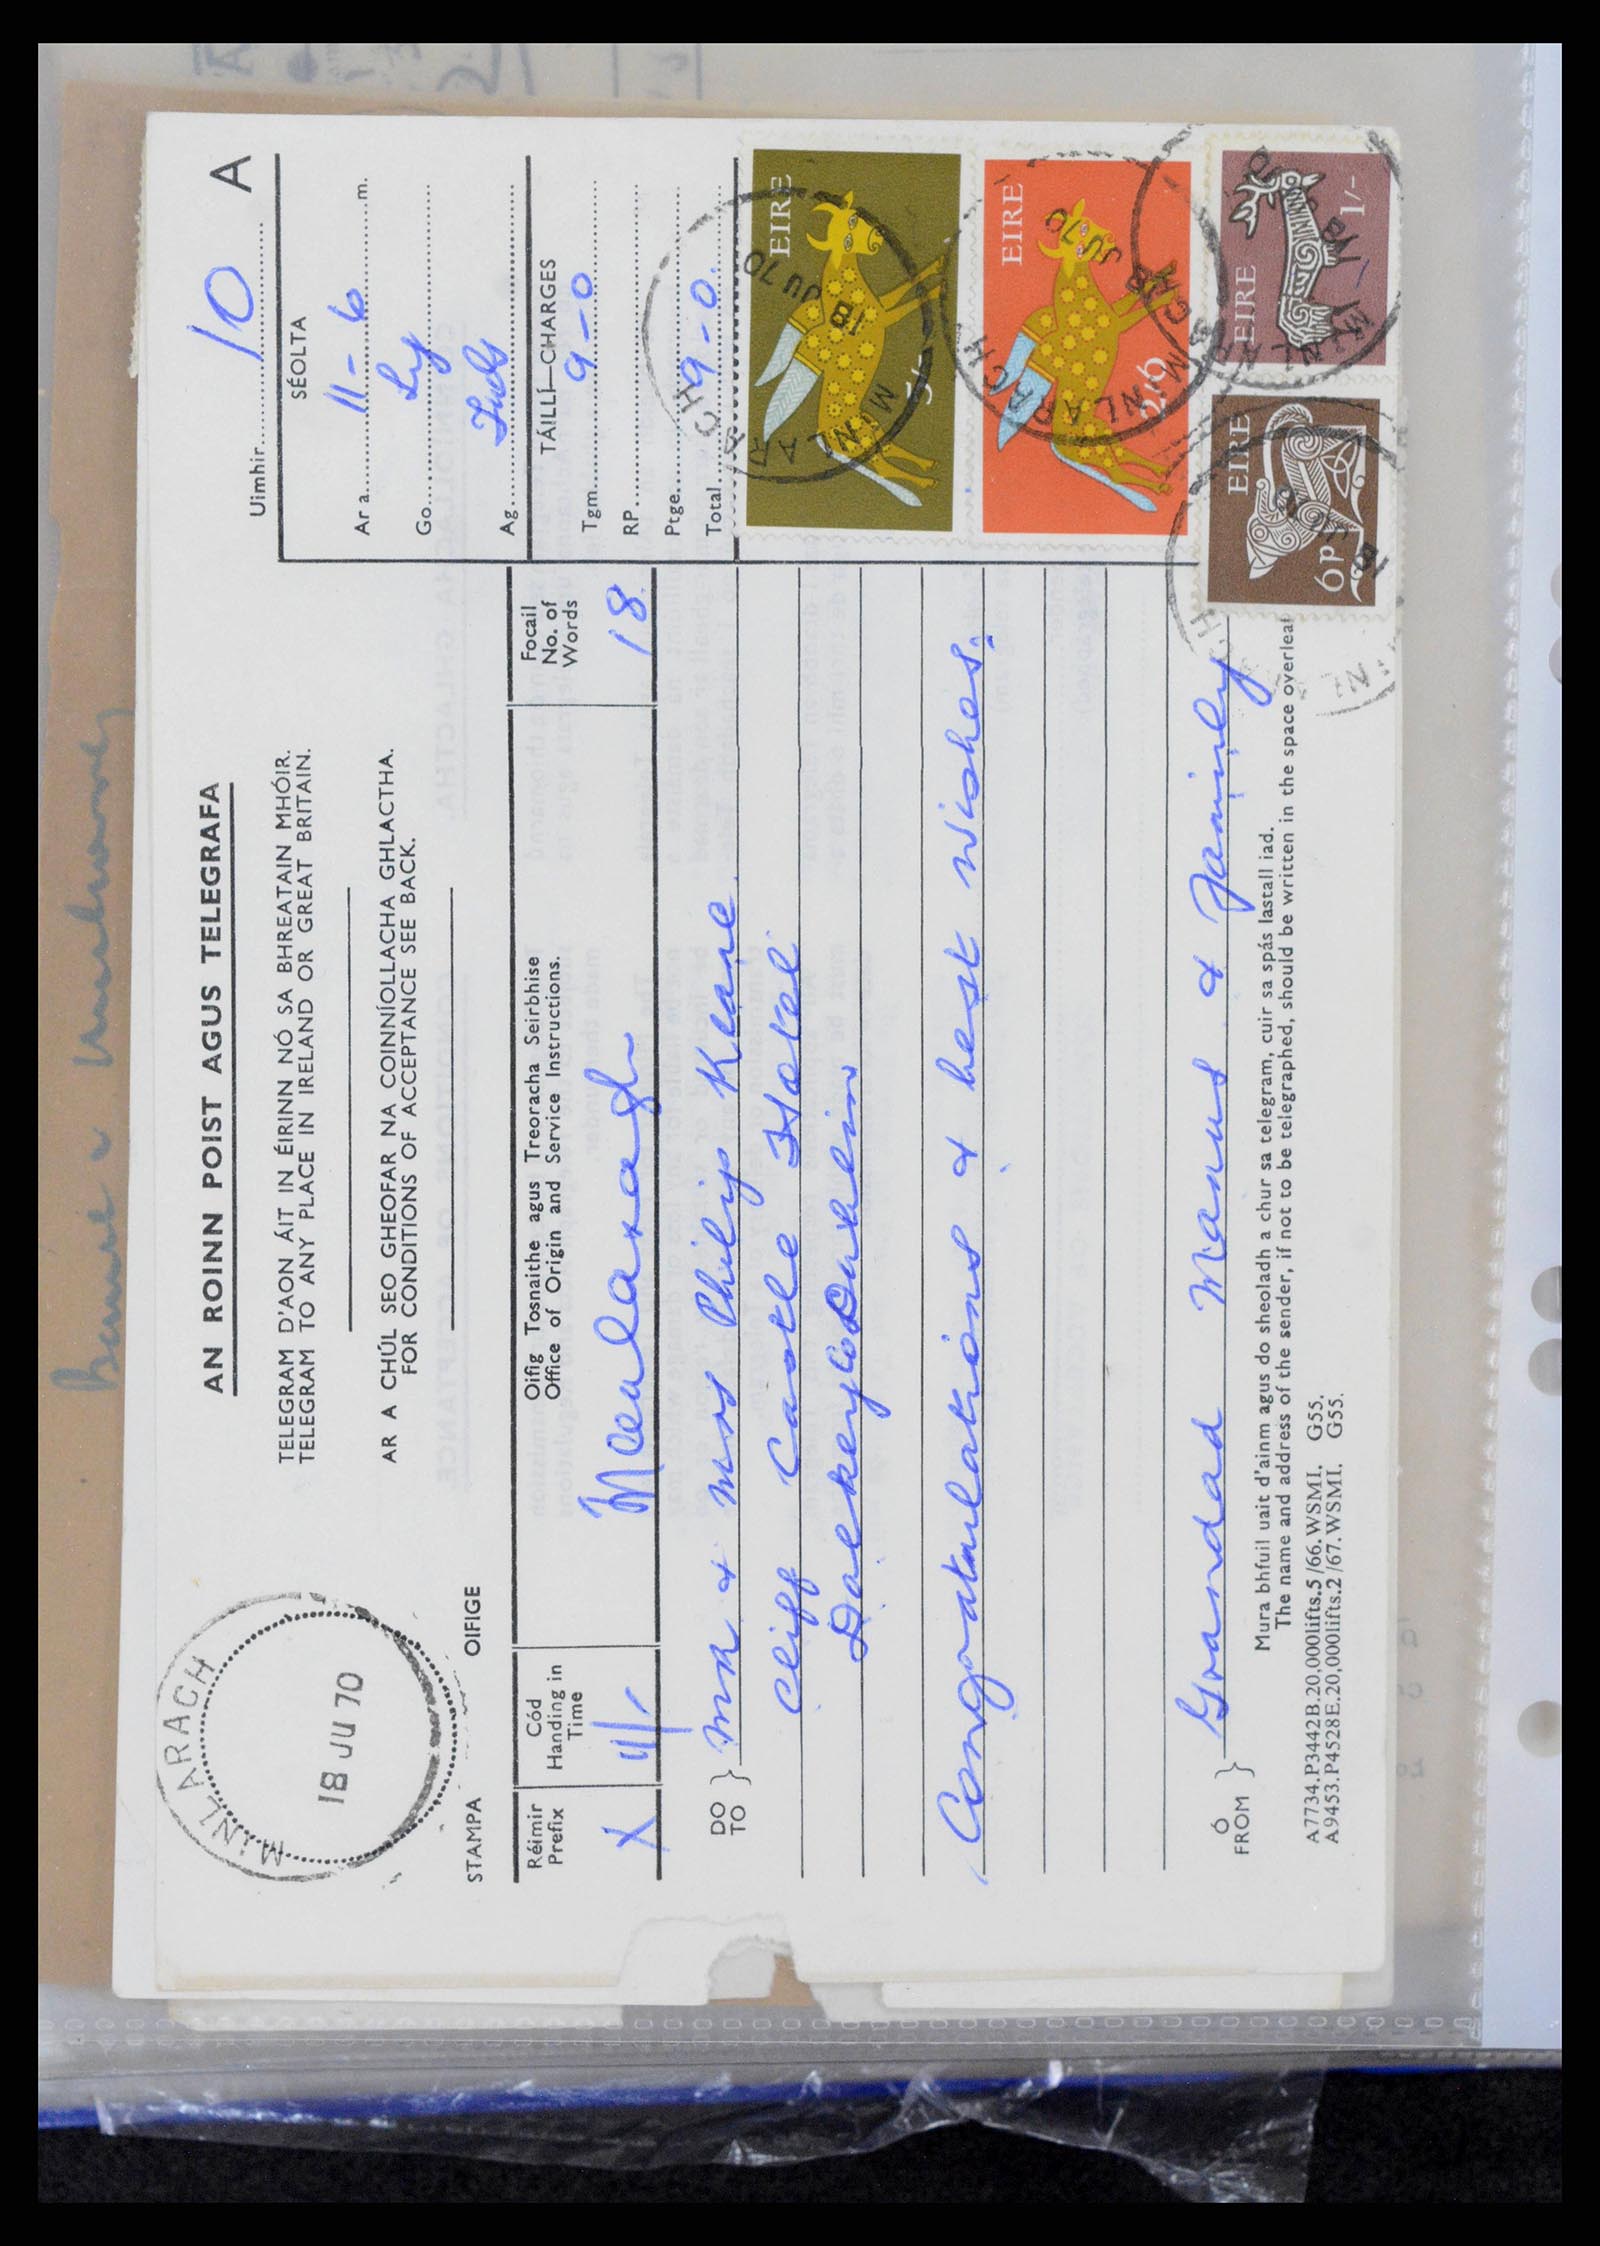 AN ROINN POIST AGUS TELEGRAFA
TELEGRAM D'AON ÁIT IN ÉIRINN NÓ SA BHREATAIN MHÓIR.
TELEGRAM TO ANY PLACE IN IRELAND OR GREAT BRITAIN.
AR A CHÚL SEO GHEOFAR NA COINNÍOLLACHA GHLACTHA.
FOR CONDITIONS OF ACCEPTANCE SEE BACK.
MINLARACH
18 JU 70
STAMPA OIFIGE
Uimhir 10 A
SÉOLTA
Ar a 11-6 m.
Go
Ag
TÁILLÍ—CHARGES
Tgm. 9-0
RP.
Ptge.
Total 9-0.
Réimir
Prefix
X
Cód
Handing in
Time
11/-
Oifig Tosnaithe agus Treoracha Seirbhise
Office of Origin and Service Instructions.
Focail
No. of
Words
18
DO
TO
MR & Mrs Philip Keane
Cliff Castle Hotel
Dalkey Co Dublin
Congratulations & best wishes.
Ó
FROM
Grandad Manus & Family
Mura bhfuil uait d'ainm agus do sheoladh a chur sa telegram, cuir sa spás lastall iad.
The name and address of the sender, if not to be telegraphed, should be written in the space overleaf
A7734.P3442B.20,000lifts.5/66.WSMI. G55.
A9453.P4528E.20,000lifts.2/67.WSMI. G55.
EIRE
5/-
MINLARACH
18 JU 70
EIRE
2/6
MINLARACH
18 JU 70
EIRE
1/-
EIRE
6p